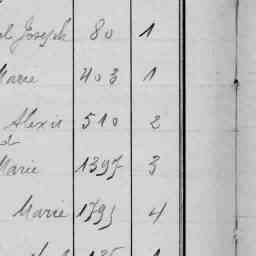 Joseph 80 1
Marie 403 1
Alexis 510 2
d
Marie 1397 3
Marie 1795 4